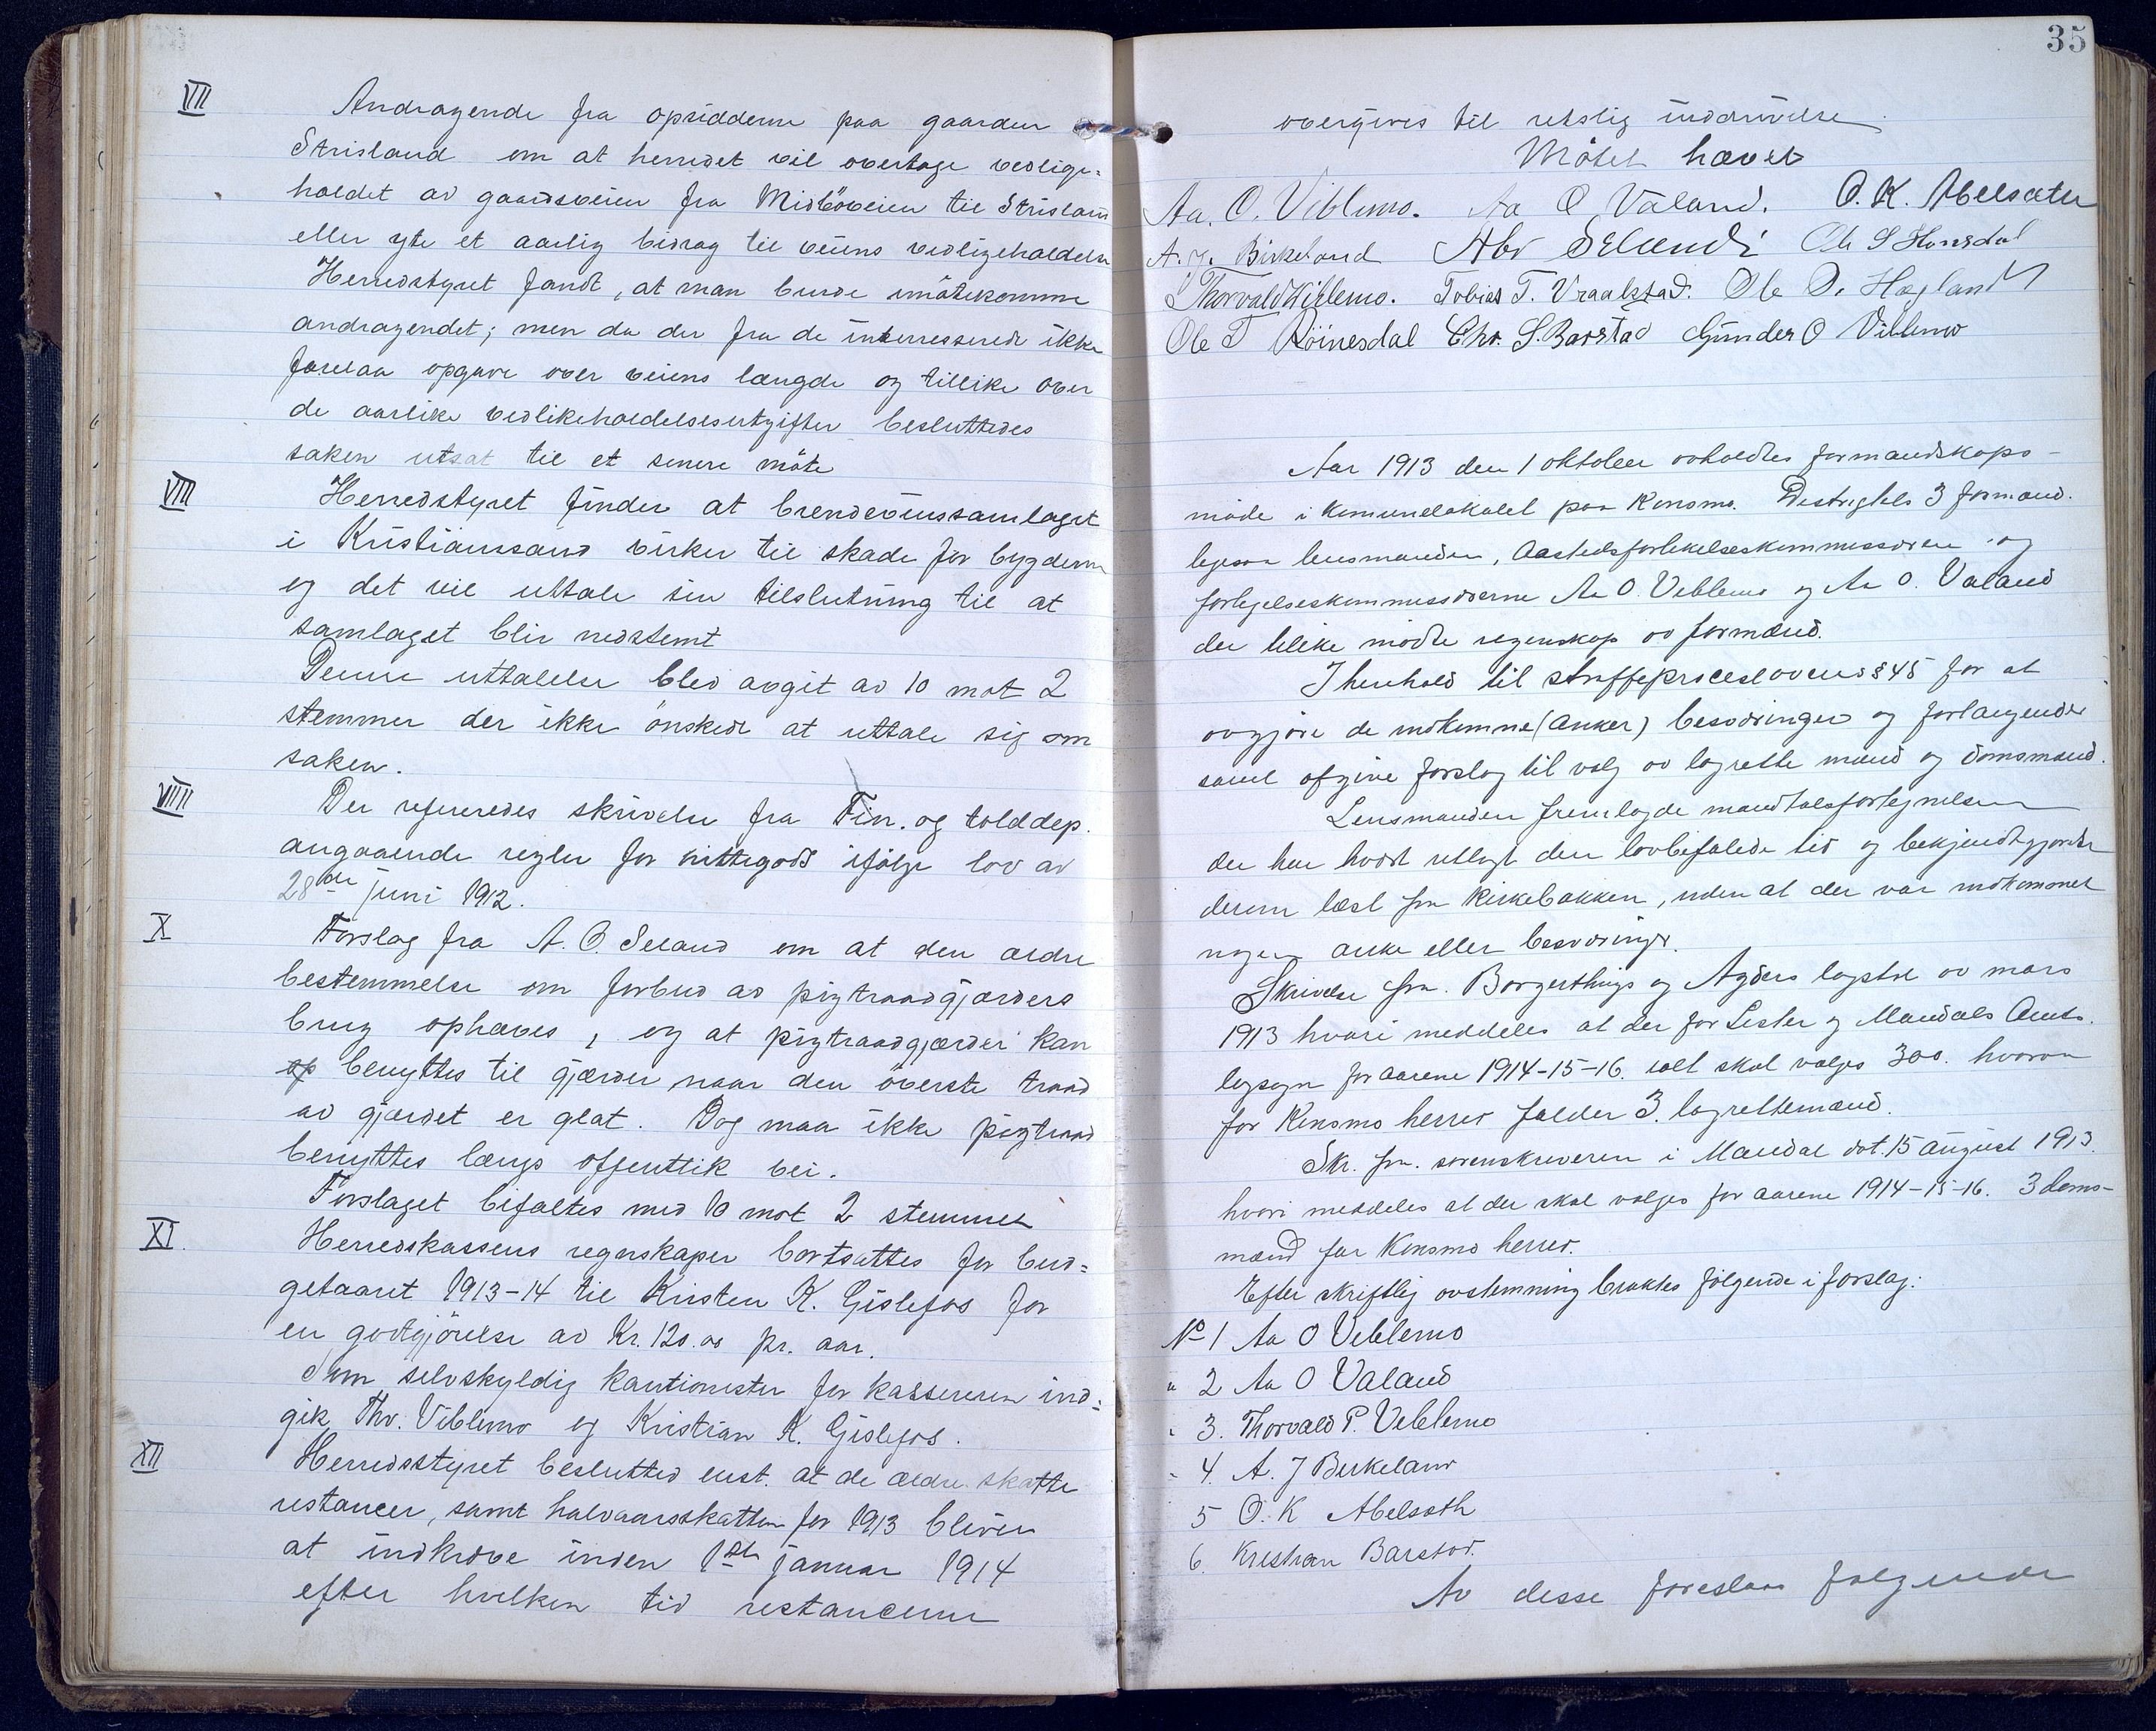 VII
Andragende fra opsidderne paa gaarden
Strisland om at herredet vil overtage vedlige-
holdet av gaardsveien fra Midböveien til Strisland
eller yte et aarlig bidrag til veiens vedligeholdelse
Herredstyret fandt, at man burde imötekomme
andragendet; men da der fra de interresserede ikke
forelaa opgave over veiens længde og tillike over
de aarlike vedlikeholdelsesutgifter besluttedes
saken utsat til et senere möte
VIII
Herredstyret finder at brendevinssamlaget
i Kristianssand virker til skade for bygderne
og det vil uttale sin tilslutning til at
samlaget blir nedstemt
Denne uttalelse blev avgit av 10 mot 2
stemmer der ikke önskede at uttale sig om
saken.
VIIII
Der refereredes skrivelse fra Fin. og tolddep.
angaaende regler for hittegods ifölge lov av
28de juni 1912.
X
Forslag fra A. O. Seland om at den ældre
bestemmelse om forbud av pigtraadgjærders
brug ophæves, og at pigtraadgjærder kan
op benyttes til gjærder naar den överste traad
av gjærdet er glat. Dog maa ikke pigtraad
benyttes langs offentlik vei.
Forslaget bifaltes med 10 mot 2 stemmer
XI.
Herredskassens regnskaper bortsattes for bud-
getaaret 1913-14 til Kristen K. Gislefos for
en godtgjörelse av Kr. 120.00 pr. aar.
Som selvskyldig kautionister for kassereren ind-
gik Thv. Viblemo og Kristian K. Gislefos.
XII
Herredsstyret beslutted enst. at de ældre skatte
restancer, samt halvaarsskatten for 1913 bliver
at indkræve inden 1ste januar 1914
efter hvilken tid restancerne
35
overgives til retslig inddrivelse
Mötet hævet
Aa. O. Viblemo. Aa O Valand. O. K. Abelsæter
A. J. Birkeland Abr Selandi Ole S Honsdal
Thorvald Viblemo. Tobias T. Vraalstad. Ole O. Hægland
Ole T Röinesdal Chr. S. Barstad Gunder O Viblemo
Aar 1913 den 1 oktober avholdtes formandskaps-
möde i komunelokalet paa Konsmo. Desvigtels 3 formænd.
ligesaa lensmanden, Aastedsforlikelseskommissæren og
forligelseskommissærerne Aa O. Viblemo og Aa O. Valand
der tilike mödte regenskap av formænd.
I henhold til straffeproceslovens § 45 for at
avgjöre de indkomne (anker) besværinger og forlangender
samt afgive forslag til valg av lagrette mænd og domsmænd.
Lensmanden fremlagde mandtalsfortegnelsen
der har været utlagt den lovbefalede tid og bekjendtgjörelse
derom læst fra kirkebakken, uden at der var indkommet
nogen anke eller besværinger.
Skrivelse fra. Borgerthings og Agders lagstol av mars
1913 hvori meddeles at der for Lister og Mandals Amts.
lagsogn for aarene 1914-15-16. ialt skal vælges 300. hvorav
for Konsmo herred falder 3. lagrettemænd.
Skr. fra. sorenskriveren i Mandal dat. 15 august 1913.
hvori meddeles at der skal vælges for aarene 1914-15-16. 3 doms-
mænd for Konsmo herred.
Efter skriftlig avstemning bruktes fölgende i forslag:
No 1 Aa O Viblemo
" 2 Aa O Valand
" 3. Thorvald P. Viblemo
" 4. A. J Birkeland
5 O. K Abelseth
6. Kristian Barstad.
Av desse foreslaas fölgende